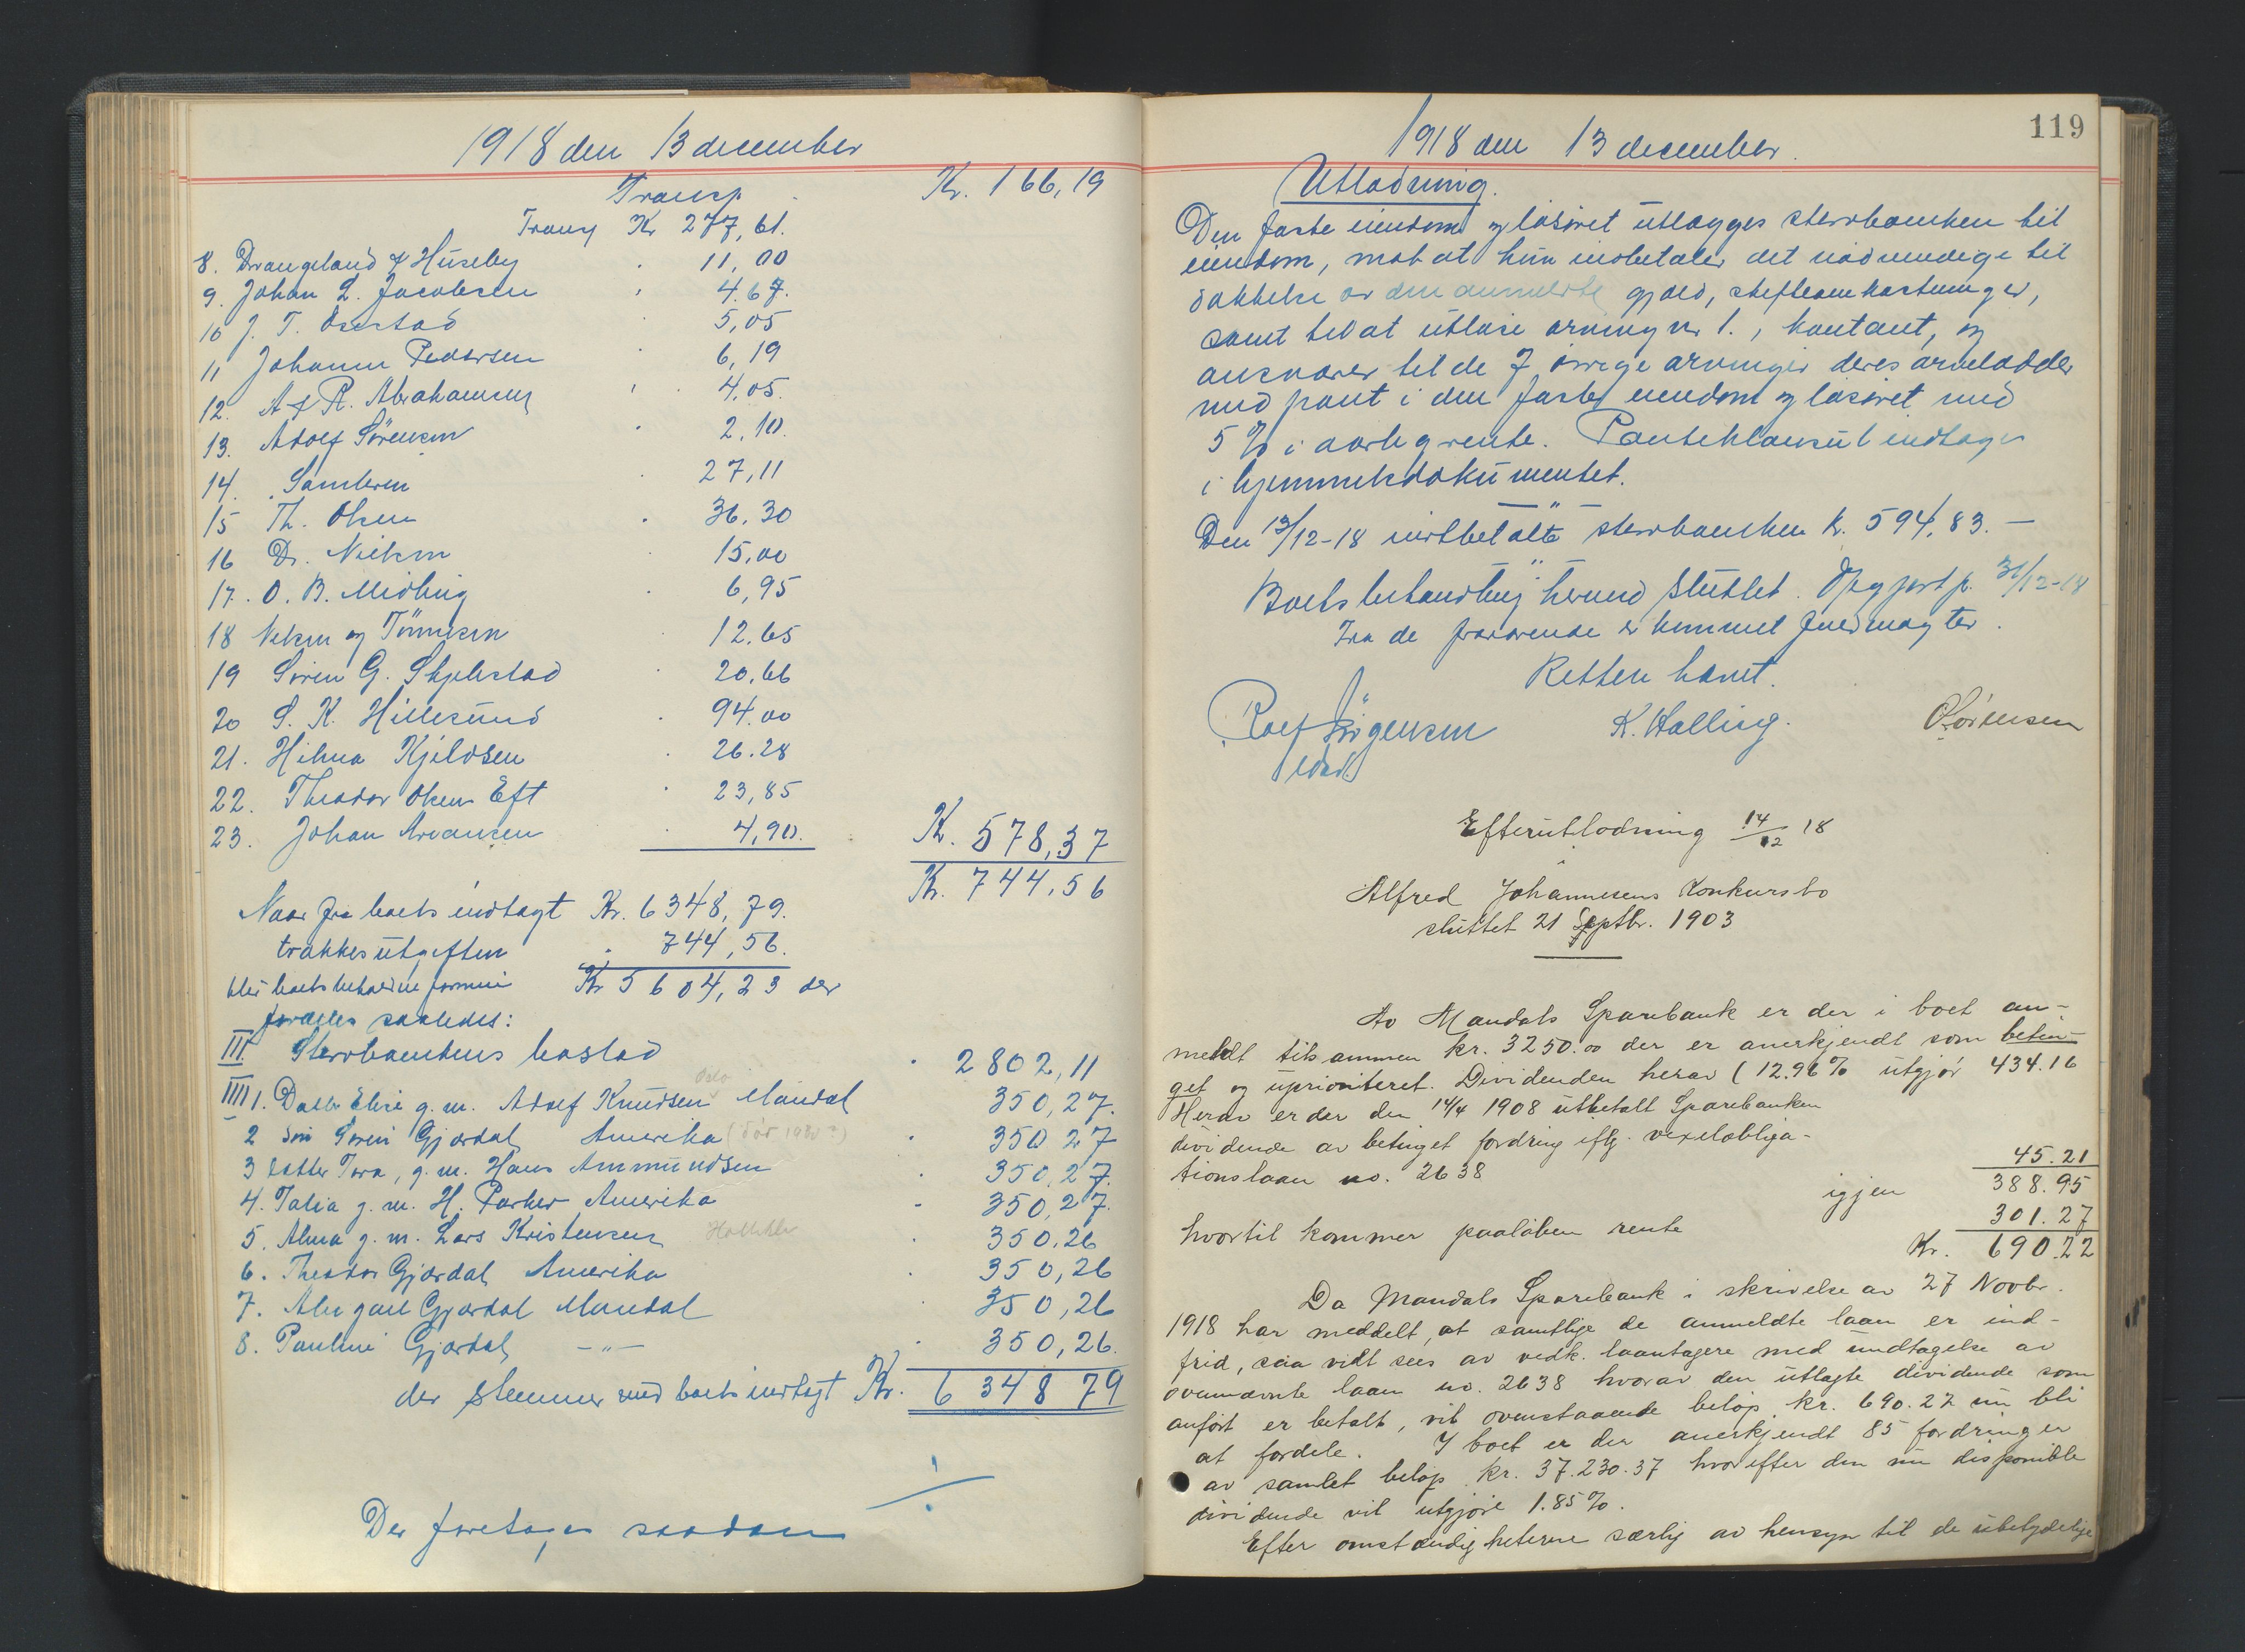 1918 den 13 december
Transp. Kr. 166,19
Transp Kr 277,61.
8. Drangeland & Huseby 11,00
9. Johan L. Jacobsen 4.67.
10 J. T. 5,05
11 Johann Pedersen 6,19
12. A & R. Abrahamsen 4,05.
13. Adolf Sörensen 2,10.
14. Samleren 27,11
15 Th. Olsen 36.30
16 Dr. Nielsen 15,00
17. O. B. Midling 6,95
18 og Tönnesen 12.65
19 Sören G. Skjelstad 20,66
20 S. K. Hillesund 94.00
21. Hilma Kjeldsen 26.28
22. Theodor Olsens Eft 23,85
23. Johan Arvansen 4,90. Kr. 578,37
Kr. 744,56
Naar fra boets indtægt Kr. 6348,79.
trækkes utgiften 744,56.
blir boets beholdne formue Kr 5604,23 der
fordeles saaledes:
III Stervboenkens boslod 2802,11
IIII 1. Datter Elise g. m. Adolf Knudsen Oslo Mandal 350,27.
2 Sön Sören Gjærdal Amerika (död 1930?) 350 27
3 Datter Tora, g. m. Hans Ammundsen 350,27.
4. Talia g. m. H. Parker Amerika 350,27.
5. Alma g. m. Lars Kristensen 350,26
6. Theodor Gjærdal Amerika 350,26
7. Abigael Gjærdal Mandal 350,26
8. Pauline Gjærdal -"- 350,26.
der stemmer med boets indtægt Kr. 6348 79
Der foretages saadan
119
1918 den 13 december.
Utlodning.
Den faste eiendom og lösöret utlægges stervboenken til
eiendom, mot at hun indbetaler det nödvendige til
dækkelse av den anmeldte gjæld, skifteomkostninger,
samt til at utlöse arving nr 1., kontant, og
ansvarer til de 7 övrige arvinger deres arvelodder
med pant i den faste eiendom og lösöret med
5 % i aarlig rente. Panteklausul indtages
i hjemmelsdokumentet.
— " —
Den 13/12-18 indbetalte stervboenken kr. 594,83. —
"
Boets behandling herved sluttet. Opgjort p. 31/12-18
Fra de fraværende er kommet fuldmagter.
Retten hævet.
Rolf Jörgensen K. Halling. O Sörensen
Efterutlodning 14/12 18
Alfred Johannesens Konkursbo
sluttet 21 Septbr. 1903
Av Mandals Sparebank er der i boet an-
meldt tilsammen kr. 3250.00 der er anerkjendt som betin-
get og uprioriteret. Dividenden herav (12.96% utgjör 434.16
Herav er der den 14/4 1908 utbetalt Sparebanken
dividende av betinget fordring iflg. vexelobliga-
tionslaan no. 2638 45.21
igjen 388.95
hvortil kommer paalöben rente 301.27
Kr. 690.22
Da Mandals Sparebank i skrivelse av 27 Novbr.
1918 har meddelt, at samtlige de anmeldte laan er ind-
frid, saa vidt sees av vedk. laantagere med undtagelse av
ovennævnte laan no. 2638 hvorav den utlagte dividende som
anfört er betalt, vil ovenstaaende belöp kr. 690.22 nu bli
at fordele. I boet er der anerkjendt 85 fordringer
av samlet belöp kr. 37.230.37 hvorefter den nu disponible
dividende vil utgjöre 1.85%.
Efter omstændigheterne særlig av hensyn til de ubetydelige